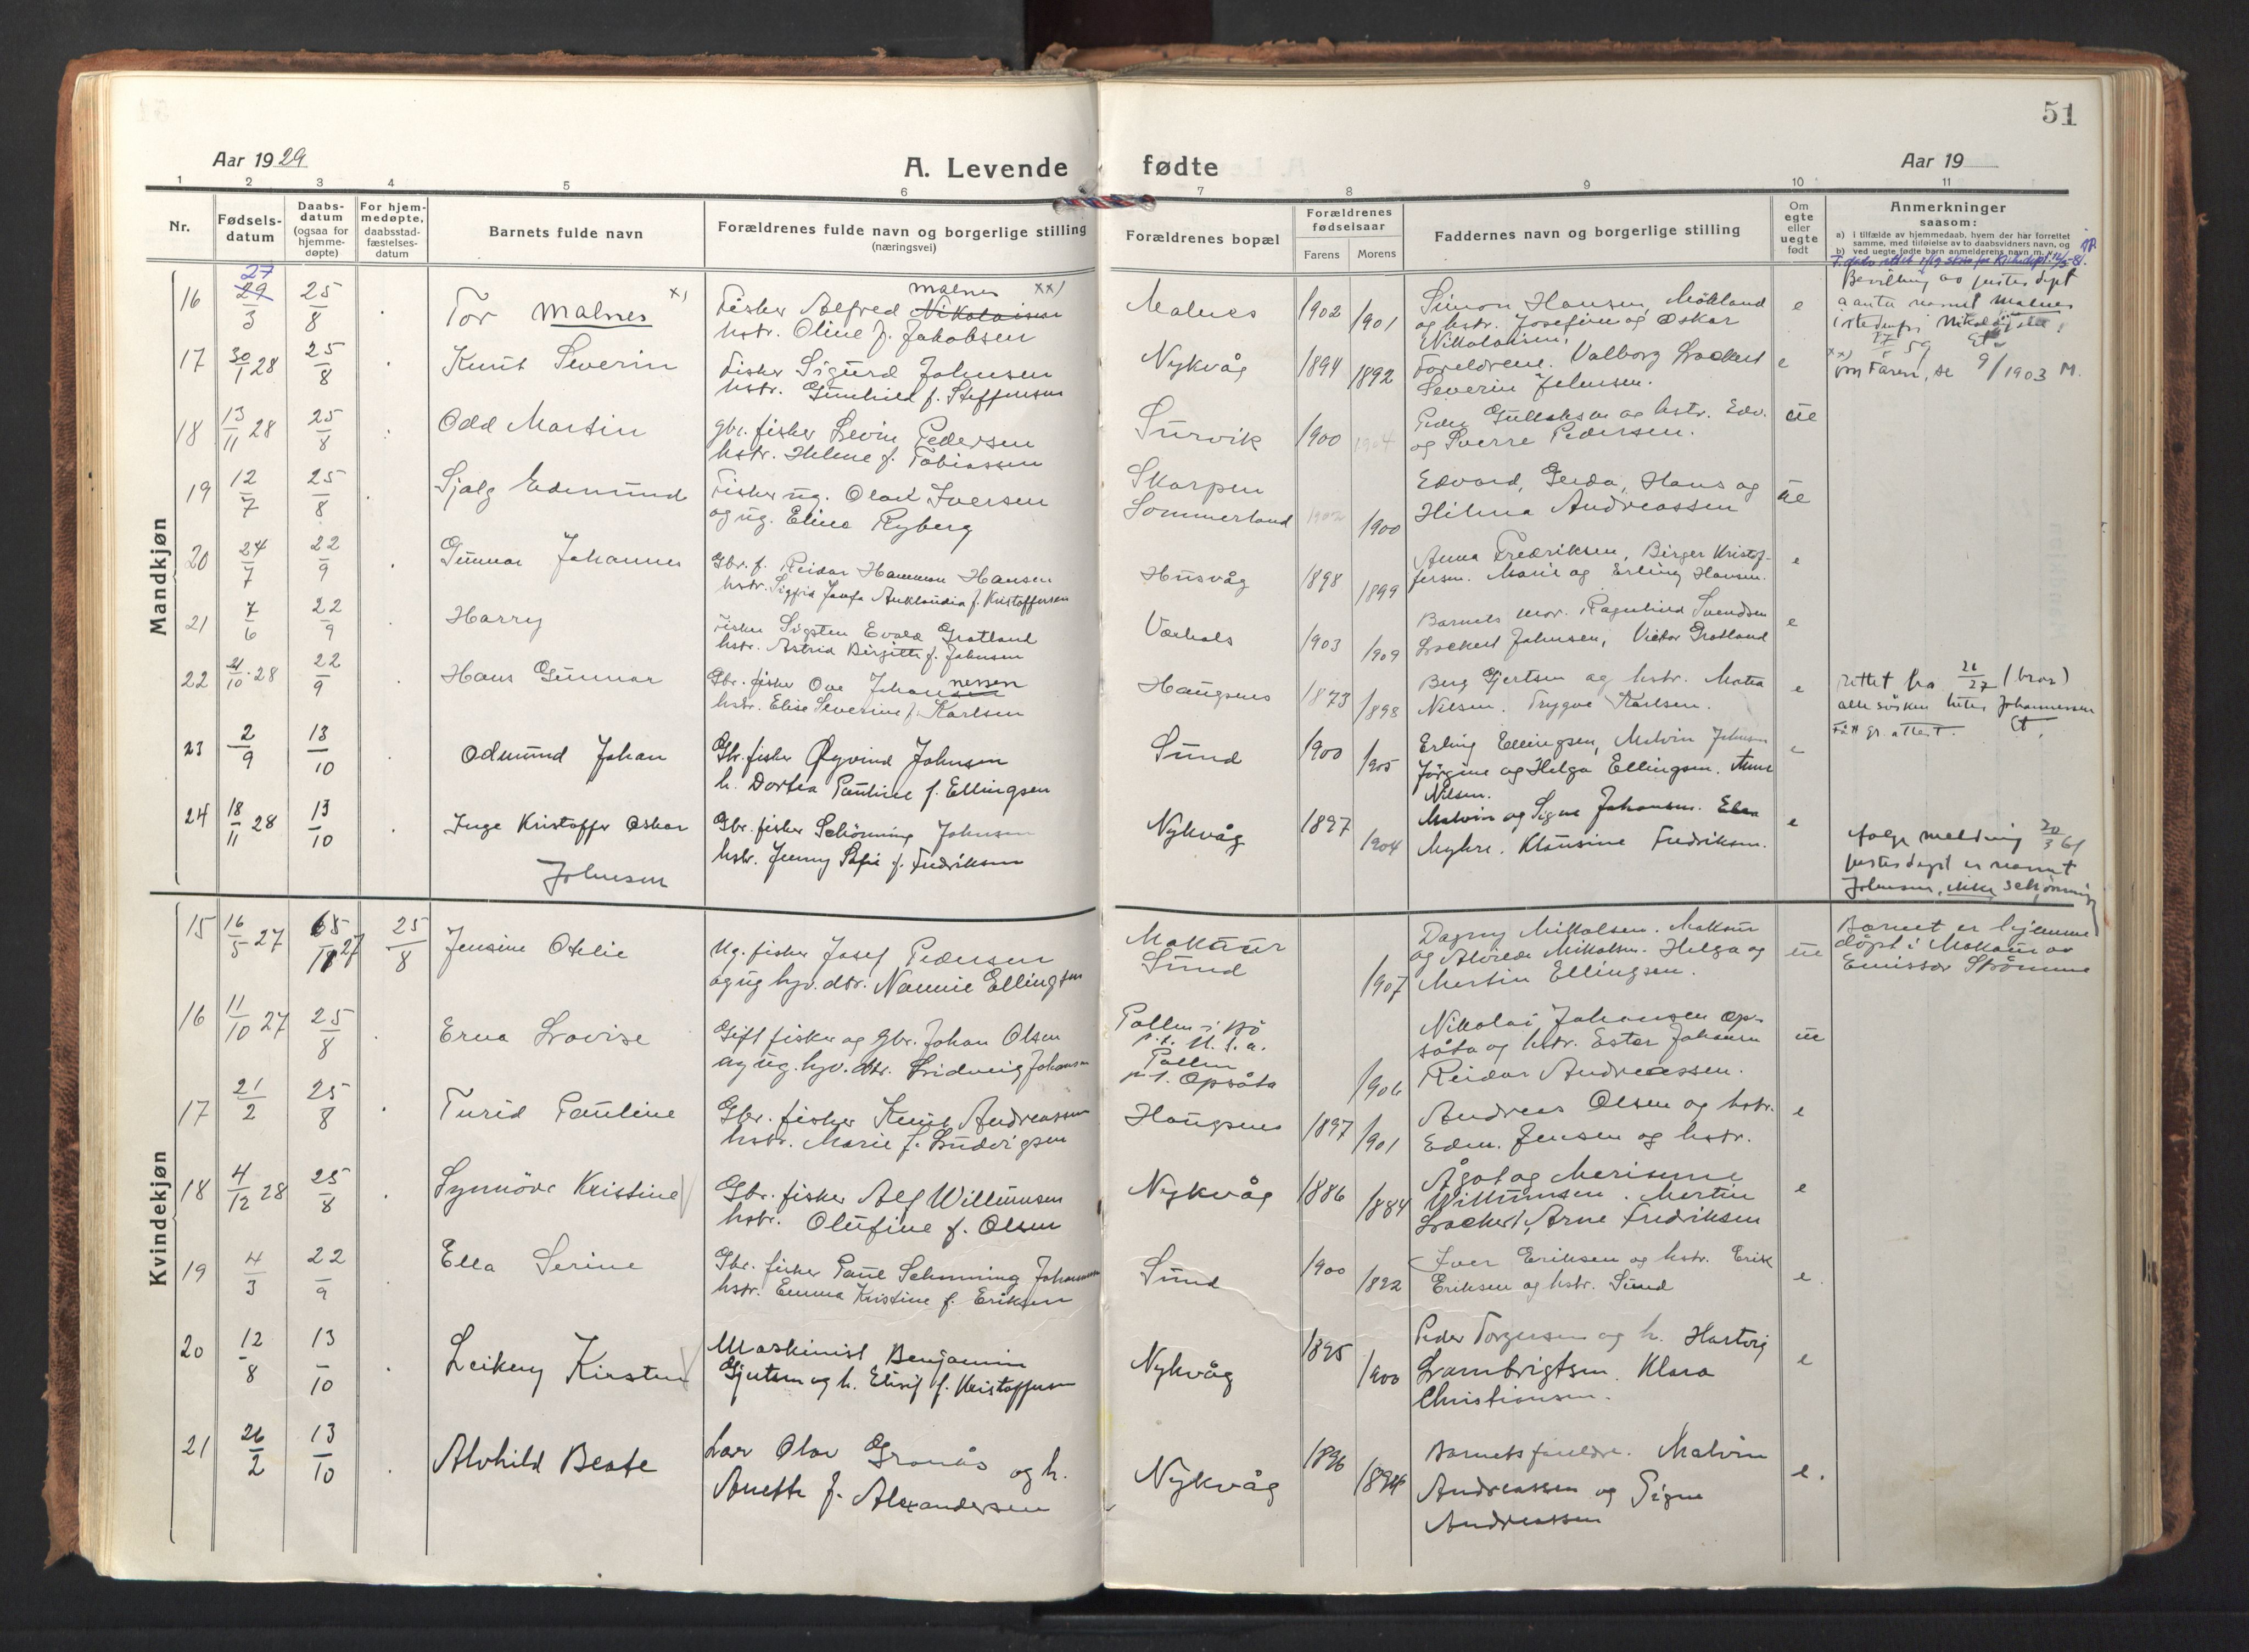 51
Aar 1929
A. Levende
fødte
Aar 19
1 2 3 4 5 6 7 8 9 10 11
Nr.
Fødsels-
datum
Daabs-
datum
(ogsaa for
hjemme-
døpte)
For hjem-
medøpte,
daabsstad-
fæstelses-
datum
Barnets fulde navn
Forældrenes fulde navn og borgerlige stilling
(næringsvei)
Forældrenes bopæl
Forældrenes
fødselsaar
Farens
Morens
Faddernes navn og borgerlige stilling
Om
egte
eller
uegte
født
Anmerkninger
saasom:
a) i tilfælde av hjemmedaab, hvem der har forrettet
samme, med tilføielse av to daabsvidners navn, og
b) ved uegte fødte barn anmelderens navn m. v.
Mandkjøn
16
27
29/3
25/8
Tor Malnes x)
Malnes xx)
Fisker Alfred Nikolaisen
hstr. Oline f. Jakobsen
Malnes
1902
1901
Simon Hansen, Mökland
og hstr. Josefine og Oskar
Nikolaisen.
e
Bevilling av justisdept
å anta navnet Malnes
istedenfor Nikolaisen
17
30/1 28
25/8
Knut Severin
Fisker Sigurd Johnsen
hstr. Gunhild f. Steffensen
Nykvåg
1894
1892
Foreldrene. Valborg Lockert
Severin Johnsen.
e
xx)
om Faren, se 9/1903 M.
18
13/11 28
25/8
Odd Martin
gbr. fisker Levin Pedersen
hstr. Helene f. Tobiassen
Survik
1900
1904
og Sverre Pedersen.
19
12/7
25/8
Sjalg Edmund
Fisker ug. Olaf Iversen
og ug. Elina Ryberg
Skarpen
Sommerland
1902
1900
Edvard, Gerda, Hans og
Hilma Andreassen
ue
20
24/7
22/9
Gunnar Johannes
Gbr. f. Reidar Hansen
hstr. Sigfrid f. Kristoffersen
Husvåg
1898
1899
Anna Fredriksen, Birger Kristof-
fersen. Marie og Erling Hansen.
e
21
7/6
22/9
Harry
Fisker Sigsten Evald Grotland
hstr. Astrid Birgitte f. Johnsen
1903
1909
Barnets mor. Ragnhild Svendsen
Lockert Johnsen, Victor Grotland
e
22
21/10 28
22/9
Hans Gunnar
nessen
Gbr. fisker Ove Johansen
hstr. Elise Severine f. Karlsen
Haugsnes
1873
1898
Berg Gjertsen og hstr. Marta
Nilsen. Trygve Karlsen.
e
rettet fra 21/27 (bror)
alle sösken heter Johannessen
23
2/9
13/10
Odmund Johan
Gbr. fisker Øyvind Johnsen
h. Dortea Pauline f. Ellingsen
Sund
1900
1905
Erling Ellingsen, Malvin Johnsen
Jörgine og Helga Ellingsen.
Nilsen.
e
24
18/11 28
13/10
Inge Kristoffer Oskar
Johnsen
Gbr. fisker Schönning Johnsen
hstr. Jenny Sofie f. Fredriksen
Nykvåg
1897
1904
Malvin og Signe Johansen.
Myhre. Klausine Fredriksen.
e
ifølge melding 20/3 61
justisdept er navnet
Johnsen, ikke Schönning
Kvindekjøn
15
16/5 27
25/8
Jensine Otelie
Ug. fisker Josef Pedersen
og ug hjv. dtr. Nannie Ellingsen
Makaur
Sund
1907
Dagny Mikkalsen. Makaur
og Alvilde Mikkalsen. Helga og
Martin Ellingsen.
ue
Barnet er hjemme
döpt i Makaur av
Emissær Strömme
16
11/10 27
25/8
Erna Lovise
Gift fisker og Gbr. Johan Olsen
og ug. hjv. dtr. Lidveig Johansen
Pollen i Bö
p.t. U.S.a.
Pollen
p.t. Opsåta
1906
Nikolai Johansen Op-
såta og hstr. Ester Johansen
Reidar Andreassen.
ue
17
21/2
25/8
Turid Pauline
Gbr. fisker Knut Andreassen
hstr. Marie f. Ludvigsen
Haugsnes
1897
1901
Andreas Olsen og hstr.
Edm. Jensen og hstr.
e
18
4/12 28
25/8
Synnöve Kristine
Gbr. fisker Alf Willumsen
hstr. Olufine f. Olsen
Nykvåg
1886
1884
Ågot og Merisune
Willumsen. Martin
Lockert, Arne Fredriksen
e
19
4/3
22/9
Ella Serine
Gbr. fisker Paul Schönning Johansen
hstr. Emma Kristine f. Eriksen
Sund
1900
1822
Iver Eriksen og hstr. Erik
Eriksen og hstr. Sund
e.
20
12/8
13/10
Leikny Kirsten
Maskinist Benjamin
Gjertsen og h. Elisif f. Kristoffersen
Nykvåg
1895
1900
Peder Torgersen og h. Hartvig
Lambrigtsen. Klara
Christiansen.
e
21
26/2
13/10
Alvhild Beate
Lær Olav Gronås og h.
Anette f. Alexandersen
Nykvåg
1896
1894
Barnets foreldre. Malvin
Andreassen og Signe
Andreassen
e.